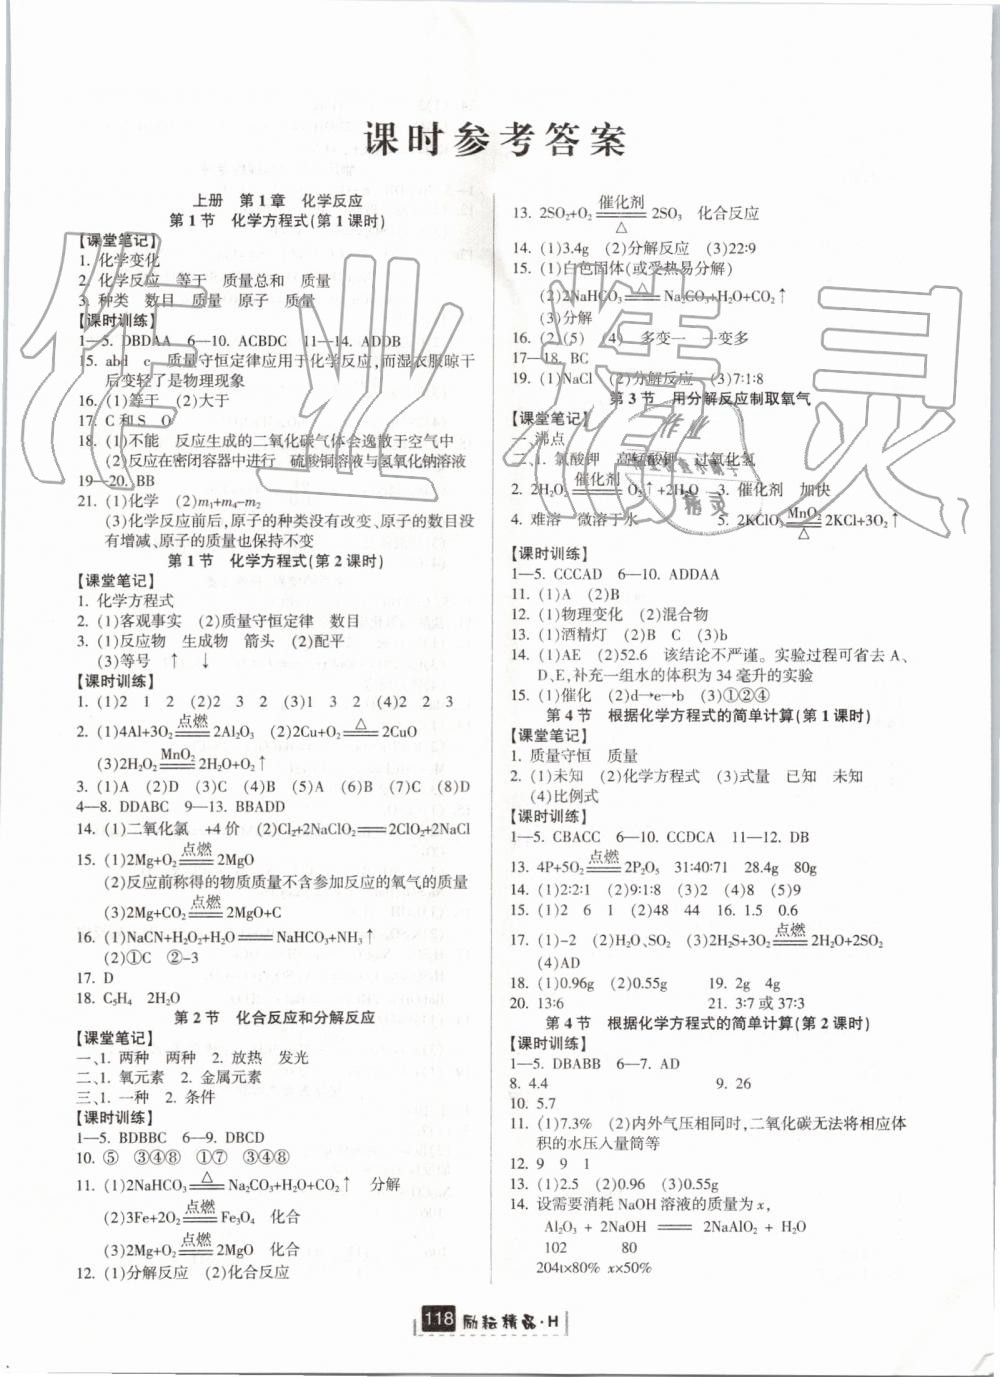 课时参考答案
上册　第1章　化学反应
第1节　化学方程式(第1课时)
【课堂笔记】
1. 化学变化
2. 化学反应　等于　质量总和　质量
3. 种类　数目　质量　原子　质量
【课时训练】
1—5. DBDAA　6—10. ACBDC　11—14. ADDB
15. abd　c　质量守恒定律应用于化学反应,而湿衣服晾干
后变轻了是物理现象
16. (1)等于　(2)大于
17. C和S　O
18. (1)不能　反应生成的二氧化碳气体会逸散于空气中
(2)反应在密闭容器中进行　硫酸铜溶液与氢氧化钠溶液
19—20. BB
21. (1)化学　(2)m₁+m₄-m₂
(3)化学反应前后,原子的种类没有改变、原子的数目没
有增减、原子的质量也保持不变
第1节　化学方程式(第2课时)
【课堂笔记】
1. 化学方程式
2. (1)客观事实　(2)质量守恒定律　数目
3. (1)反应物　生成物　箭头　(2)配平
(3)等号　↑　↓
【课时训练】
1. (1)2　1　2　(2)2　3　2　(3)1　3　2　(4)2　2　3
2. (1)4Al+3O₂ 点燃══ 2Al₂O₃　(2)2Cu+O₂ △══ 2CuO
(3)2H₂O₂ MnO₂══ 2H₂O+O₂↑
3. (1)A　(2)D　(3)C　(4)B　(5)A　(6)B　(7)C　(8)D
4—8. DDABC　9—13. BBADD
14. (1)二氧化氯　+4价　(2)Cl₂+2NaClO₂══2ClO₂+2NaCl
15. (1)2Mg+O₂ 点燃══ 2MgO
(2)反应前称得的物质质量不含参加反应的氧气的质量
(3)2Mg+CO₂ 点燃══ 2MgO+C
16. (1)NaCN+H₂O₂+H₂O══NaHCO₃+NH₃↑
(2)①C　②-3
17. D
18. C₅H₄　2H₂O
第2节　化合反应和分解反应
【课堂笔记】
一、1. 两种　两种　2. 放热　发光
二、1. 氧元素　2. 金属元素
三、1. 一种　2. 条件
【课时训练】
1—5. BDBBC　6—9. DBCD
10. ⑤　③④⑧　①⑦　③④⑧
11. (1)2NaHCO₃ △══ Na₂CO₃+H₂O+CO₂↑　分解
(2)3Fe+2O₂ 点燃══ Fe₃O₄　化合
(3)2Mg+O₂ 点燃══ 2MgO　化合
12. (1)分解反应　(2)化合反应
13. 2SO₂+O₂ 催化剂══△ 2SO₃　化合反应
14. (1)3.4g　(2)分解反应　(3)22∶9
15. (1)白色固体(或受热易分解)
(2)2NaHCO₃ △══ Na₂CO₃+H₂O+CO₂↑
(3)分解
16. (2)(5)　(4)　多变一　一变多
17—18. BC
19. (1)NaCl　(2)分解反应　(3)7∶1∶8
第3节　用分解反应制取氧气
【课堂笔记】
一、沸点
二、1. 氯酸钾　高锰酸钾　过氧化氢
2. 2H₂O₂ 催化剂══ O₂↑+2H₂O　3. 催化剂　加快
4. 难溶　微溶于水　5. 2KClO₃ MnO₂══△ 2KCl+3O₂↑
【课时训练】
1—5. CCCAD　6—10. ADDAA
11. (1)A　(2)B
12. (1)物理变化　(2)混合物
13. (1)酒精灯　(2)B　C　(3)b
14. (1)AE　(2)52.6　该结论不严谨。实验过程可省去A、
D、E,补充一组水的体积为34毫升的实验
15. (1)催化　(2)d→e→b　(3)①②④
第4节　根据化学方程式的简单计算(第1课时)
【课堂笔记】
1. 质量守恒　质量
2. (1)未知　(2)化学方程式　(3)式量　已知　未知
(4)比例式
【课时训练】
1—5. CBACC　6—10. CCDCA　11—12. DB
13. 4P+5O₂ 点燃══ 2P₂O₅　31∶40∶71　28.4g　80g
14. (1)2∶2∶1　(2)9∶1∶8　(3)2　(4)8　(5)9
15. (1)2　6　1　(2)48　44　16. 1.5　0.6
17. (1)-2　(2)H₂O、SO₂　(3)2H₂S+3O₂ 点燃══ 2H₂O+2SO₂
(4)AD
18. (1)0.96g　(2)0.55g　19. 2g　4g
20. 13∶6　21. 3∶7或37∶3
第4节　根据化学方程式的简单计算(第2课时)
【课时训练】
1—5. DBABB　6—7. AD
8. 4.4　9. 26
10. 5.7
11. (1)7.3%　(2)内外气压相同时,二氧化碳无法将相应体
积的水压入量筒等
12. 9　9　1
13. (1)2.5　(2)0.96　(3)0.55g
14. 设需要消耗NaOH溶液的质量为x,
Al₂O₃ + 2NaOH ══ 2NaAlO₂ + H₂O
102　80
204t×80%　x×50%
118 励耘精品·H
作业精灵